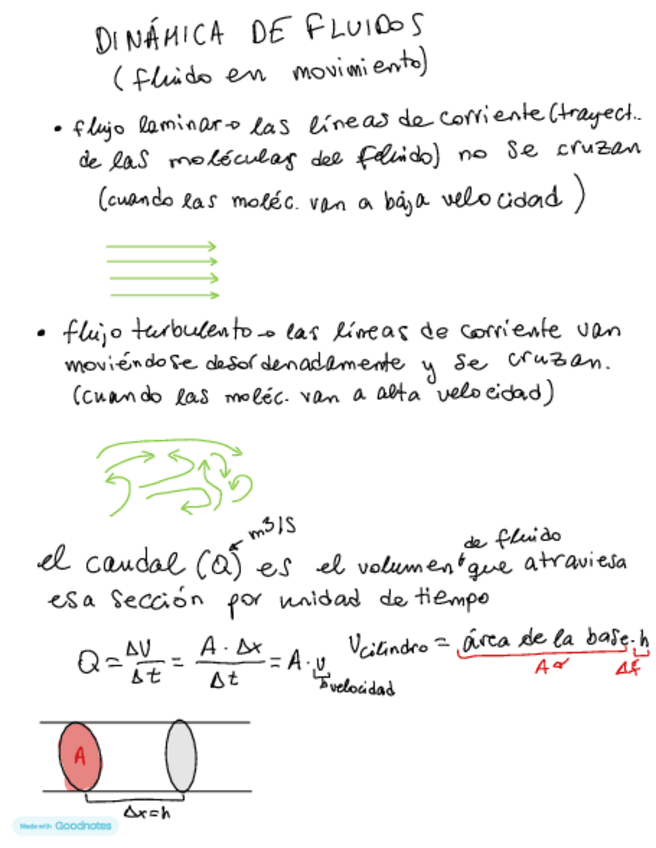 DINÁMICA DE FLUIDOS
(fluido en movimiento)
• flujo laminar → las líneas de corriente (trayect..
de las moléculas del fluido) no se cruzan
(cuando las moléc. van a baja velocidad)
• flujo turbulento → las líneas de corriente van
moviéndose desordenadamente y se cruzan.
(cuando las moléc. van a alta velocidad)
m3/S
de fluido
el caudal (Q) es el volumen que atraviesa
esa sección por unidad de tiempo
Q = ΔV/Δt = A · Δx/Δt = A · v
velocidad
Vcilindro = área de la base · h
A
A
Δx = h
Made with Goodnotes